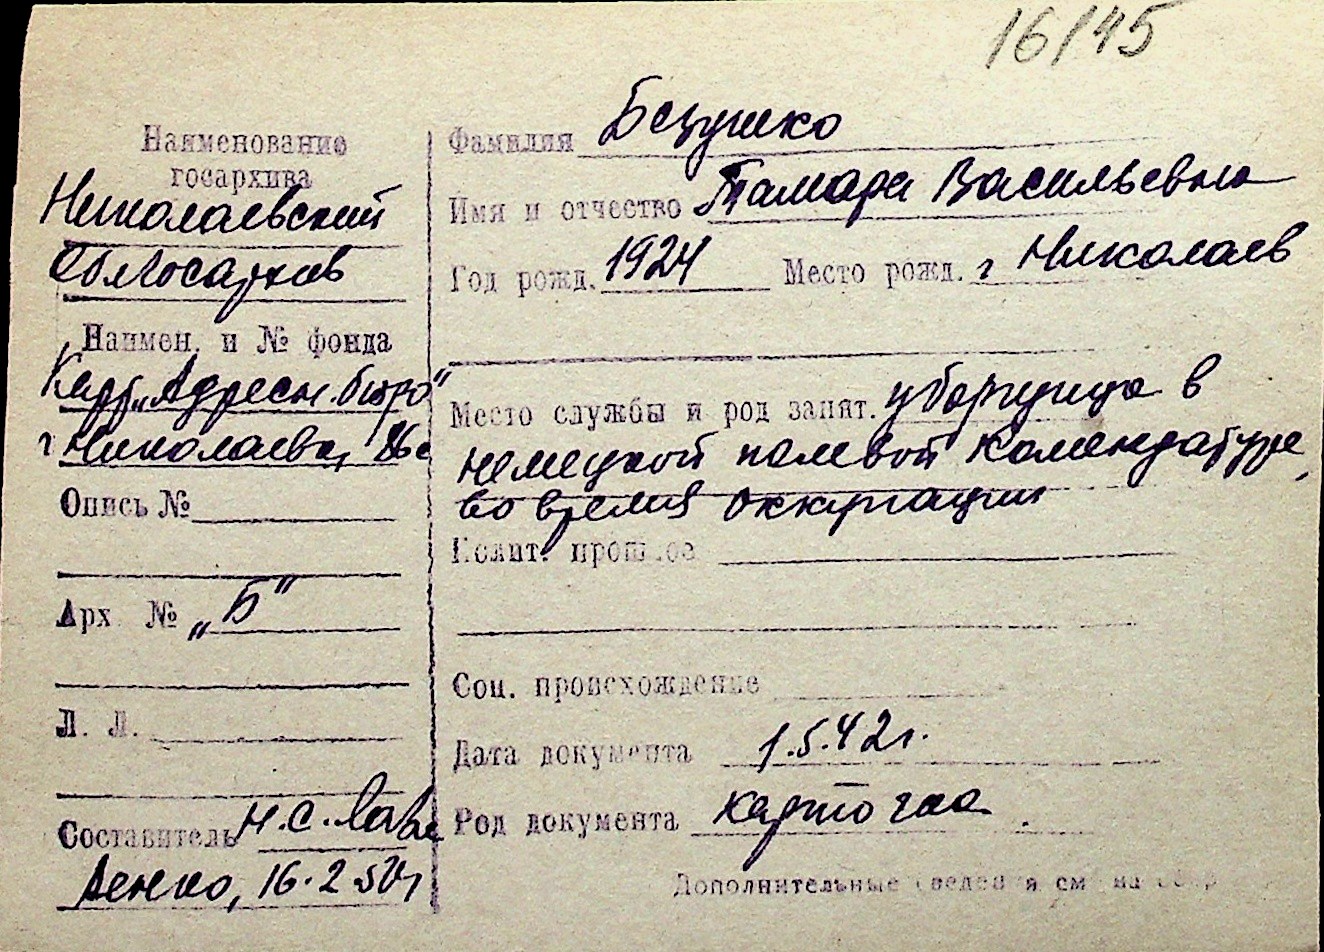 16/45
Наименование
госархива
Николаевский
Облгосархив
Наимен. и № фонда
Карт. „Адресн. бюро"
г Николаева,
Опись №
Арх № „Б"
Л. Л.
Составитель Н.С.
16.2.50г
Фамилия Бецушко
Имя и отчество Тамара Васильевна
Год рожд. 1924 Место рожд. г Николаев
Место службы и род занят. уборщица в
немецкой полевой комендатуре,
во время оккупации
Полит. прошлое
Соц. происхождение
Дата документа 1.5.42г.
Род документа карточка
Дополнительные сведения см на обор